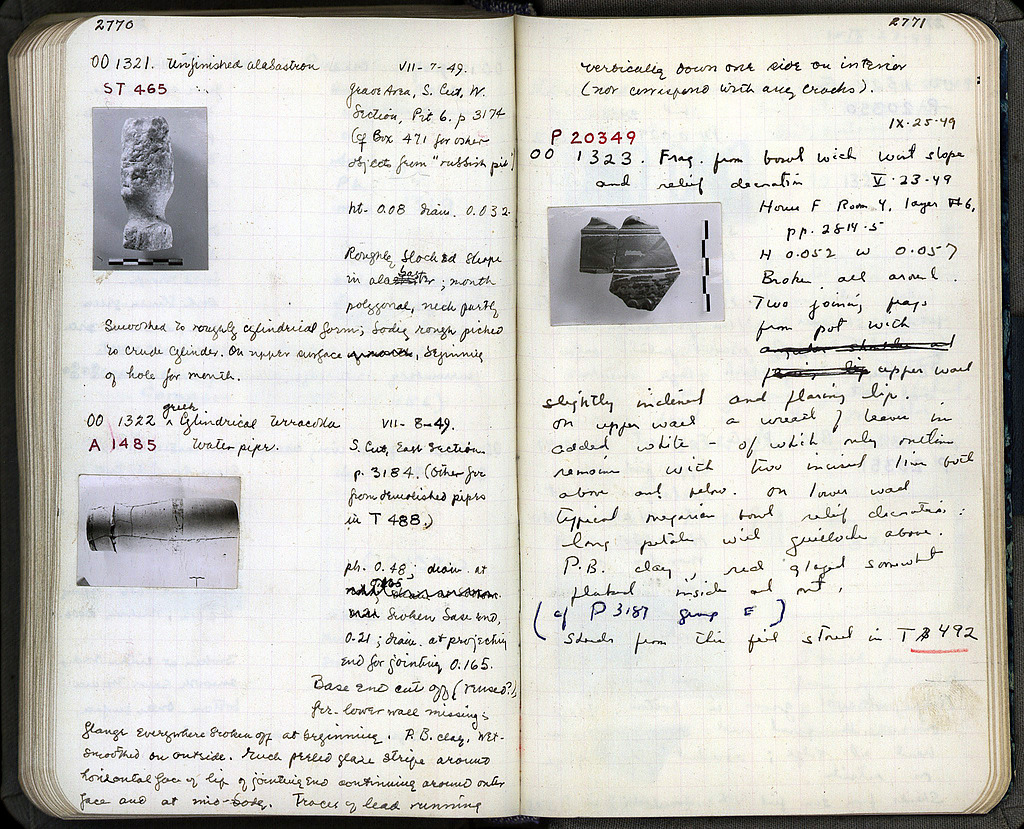 2770
OO 1321. Unfinished alabastron VII-7-49.
ST 465
Grave Area, S. Cut, W.
Section, Pit 6. p 3174
(cf Box 471 for other
objects from "rubbish pit")
ht. 0.08 diam. 0.032
Roughly blocked shape
in alabaster; mouth
polygonal, neck partly
smoothed to roughly cylindrical form; body rough picked
to crude cylinder. On upper surface, beginning
of hole for mouth.
OO 1322 Greek Cylindrical Terracotta VII-8-49.
A 1485 Water pipe.
S. Cut, East Section
p. 3184. (Other frr
from demolished pipes
in T 488.)
ph. 0.48; diam. at
broken base end,
0.21; diam. at projecting
end for jointing 0.165.
Base end cut off (reused?),
frr. lower wall missing;
flange everywhere broken off at beginning. P.B. clay, wet-
smoothed on outside. Much peeled glaze stripe around
horizontal face of lip of jointing end continuing around outer
face and at mid-body. Traces of lead running
2771
vertically down one side on interior
(not correspond with any cracks).
IX-25-49
P 20349
OO 1323. Frag. from bowl with west slope
and relief decoration V-23-49
House F Room 4, layer #6,
pp. 2814-5
H 0.052 W 0.057
Broken all around.
Two joining frags
from pot with
upper wall
slightly inclined and flaring lip.
On upper wall a wreath of leaves in
added white - of which only outline
remains with two incised lines both
above and below. On lower wall
typical megarian bowl relief decoration:
long petals with guilloche above.
P.B. clay, red glazed somewhat
flaked inside and out.
(cf P 3187 Group E)
Sherds from this fill stored in T B 492